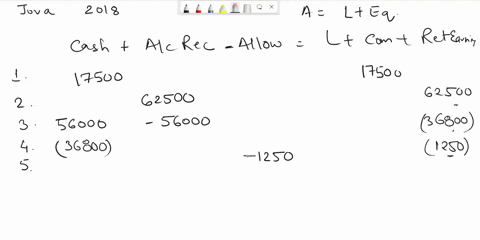 Java 2018 A = L + Eq.
Cash + A/c Rec - Allow = L + Com + Ret Earning
1. 17500 17500
2. 62500 62500
3. 56000 - 56000 (36800)
4. (36800) (1250)
5. -1250